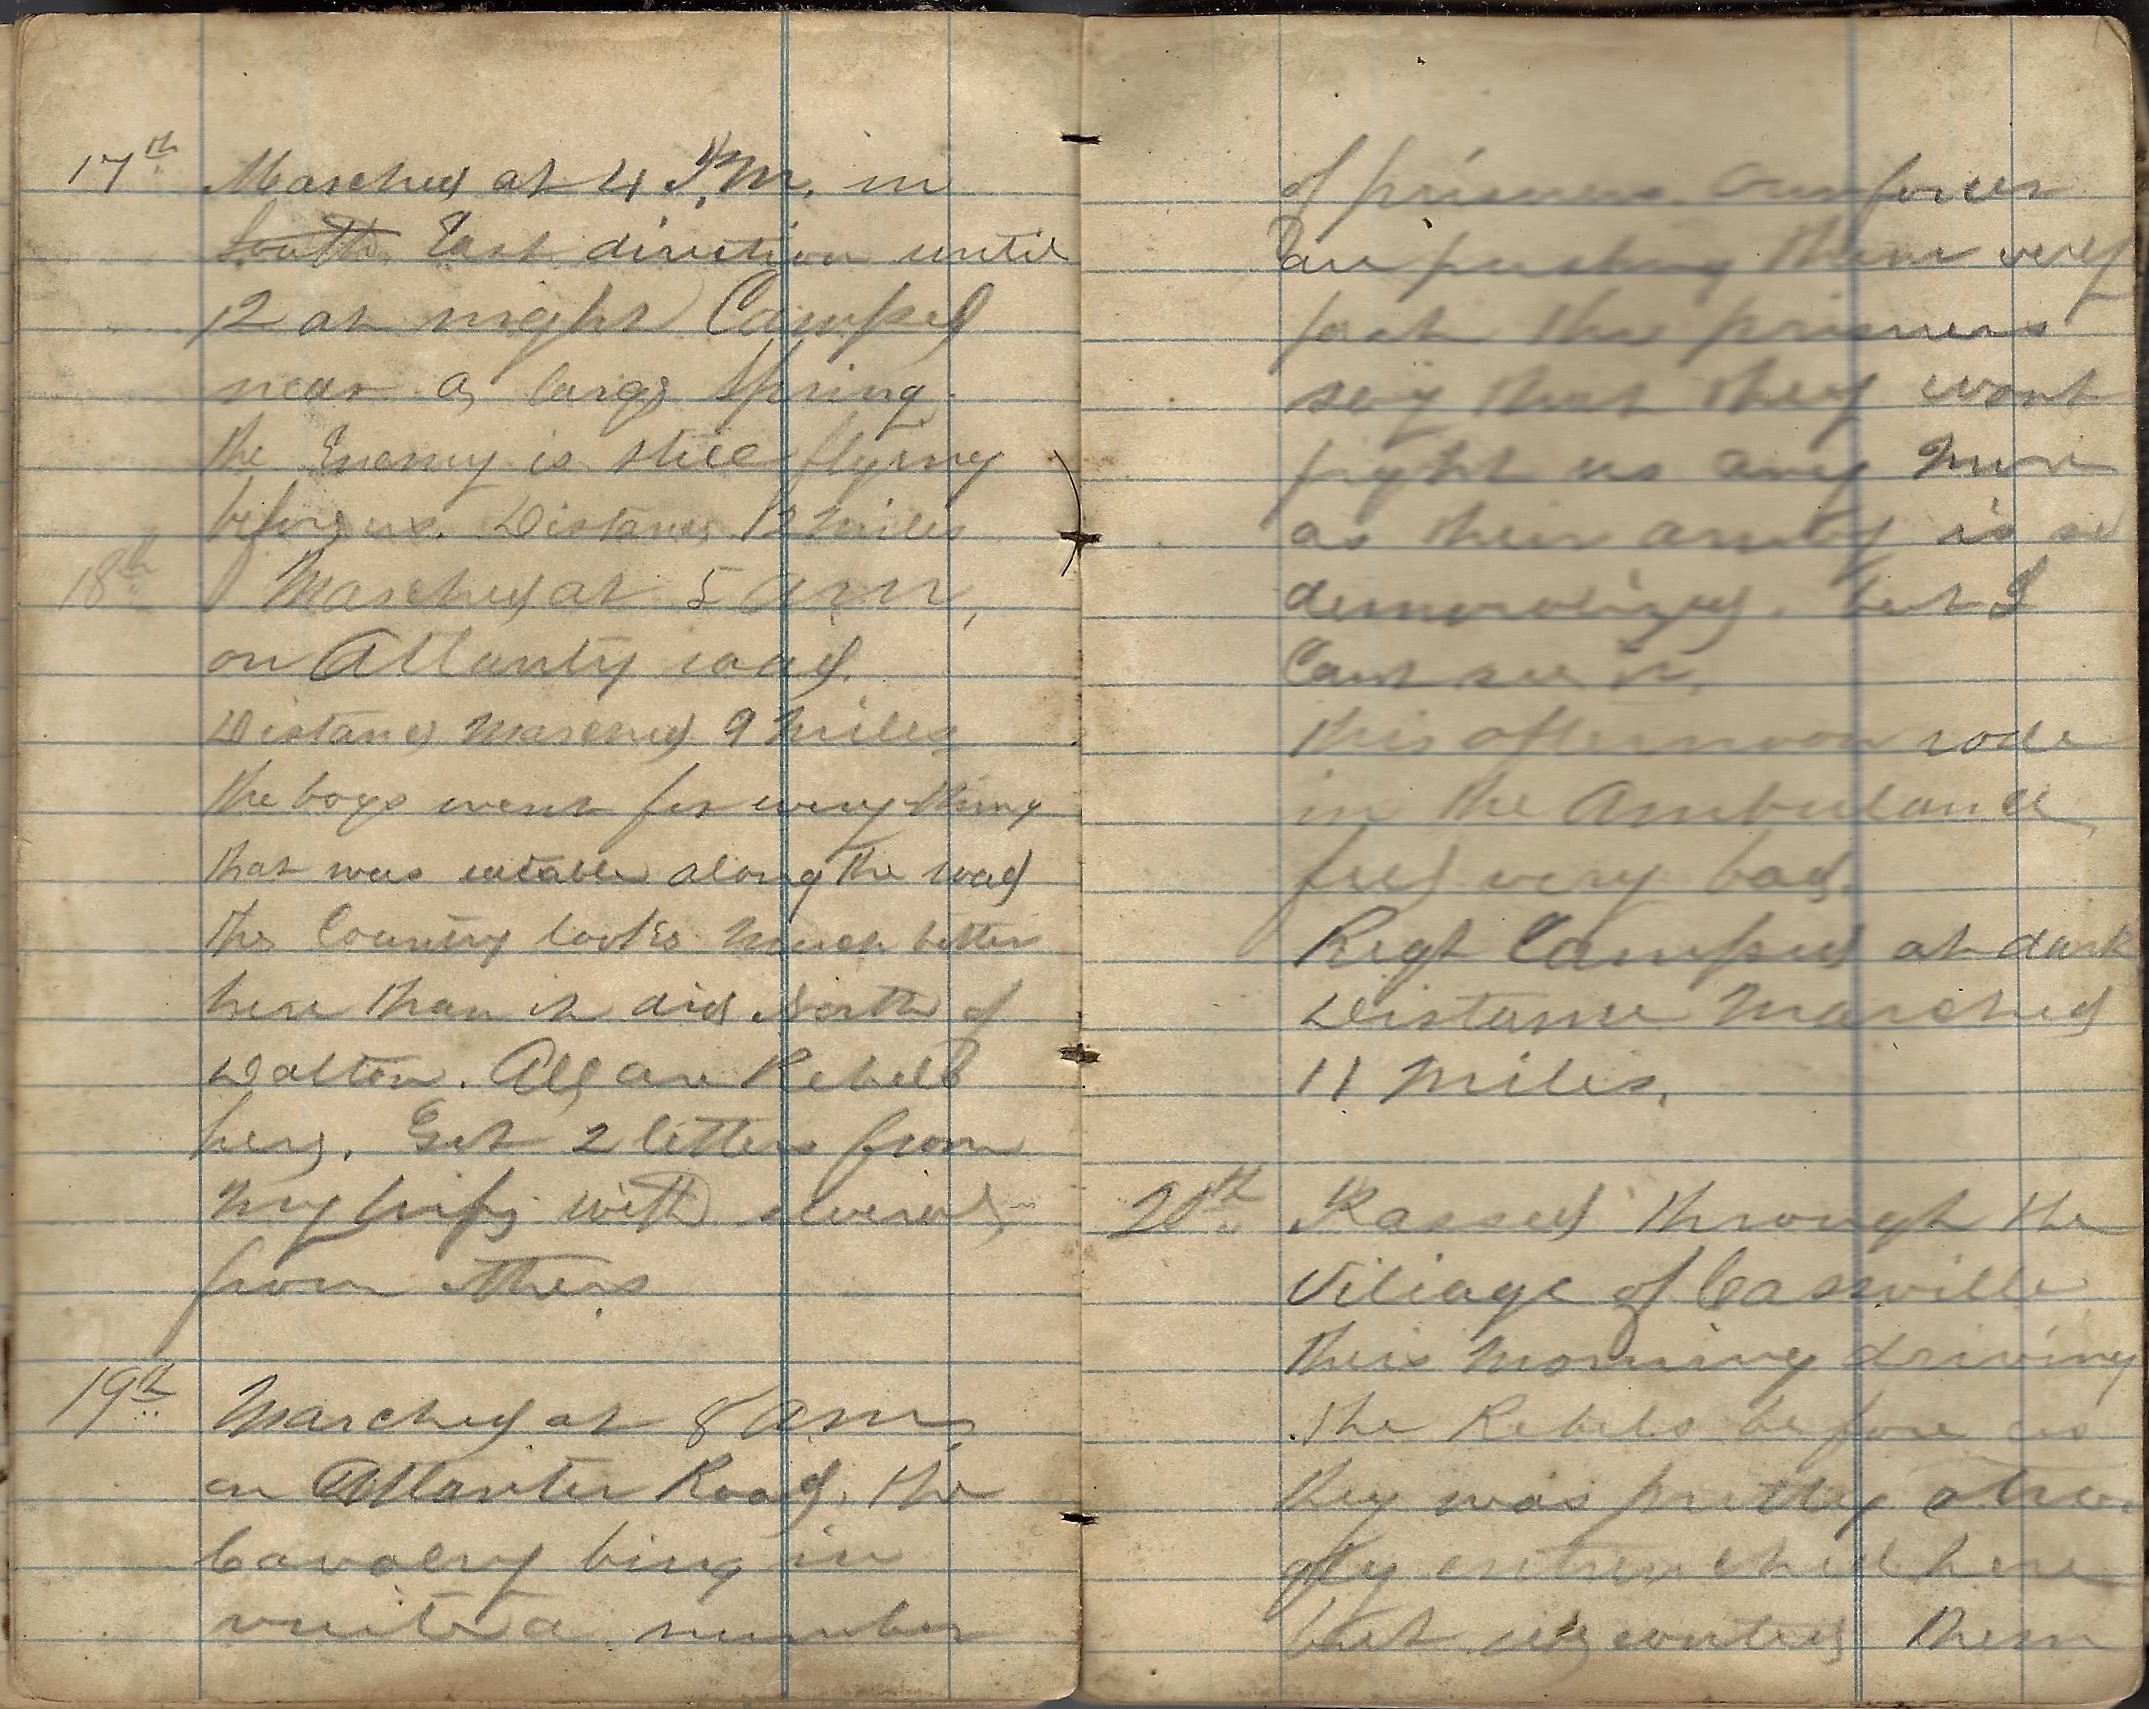 17th Marched at 4 P.M. in
South East direction until
12 at night Camped
near a large Spring.
the Enemy is still flying
before us. Distance 12 miles
18th Marched at 5 am,
on Atlanty road.
Distance Marched 9 Miles
the boys went for every thing
that was eatable along the road
the Country looks much better
here than it did North of
Dalton. All are Rebels
here. Got 2 letters from
My wife with several
from others
19th Marched at 8 am
on Atlanter Road. the
Cavalry bring in
quite a number
of prisoners. Our forces
are pushing them very
fast the prisoners
say that they wont
fight us any more
as their army is so
demoralized. but I
Cant see it.
this afternoon rode
in the Ambulance
feel very bad.
Regt Camped at dark
Distance Marched
11 Miles.
20th Passed through the
Village of Cassville
this Morning driving
the Rebels before us
they was pretty stron
gly entrenched here
but we routed them